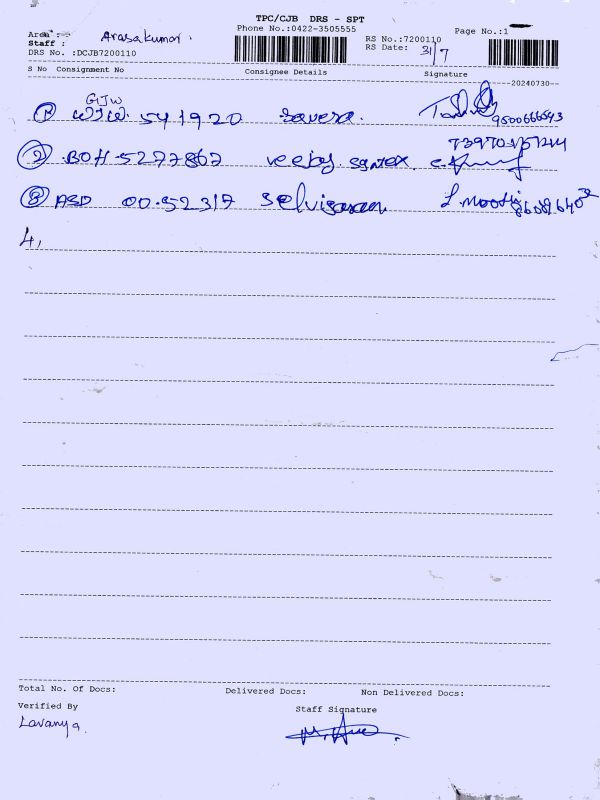 TPC/CJB DRS - SPT
Phone No.:0422-3505555
Page No.:1
Area :
Staff : Arasakumar.
RS No.:7200110
RS Date: 31/7
DRS No. :DCJB7200110
S No Consignment No Consignee Details Signature
20240730
GJW
① 541920 Savera. 9500666543
② BOH 5277867
③ ASD 00.52317 Selvisaran
4,
Total No. Of Docs: Delivered Docs: Non Delivered Docs:
Verified By Staff Signature
Lavanya.